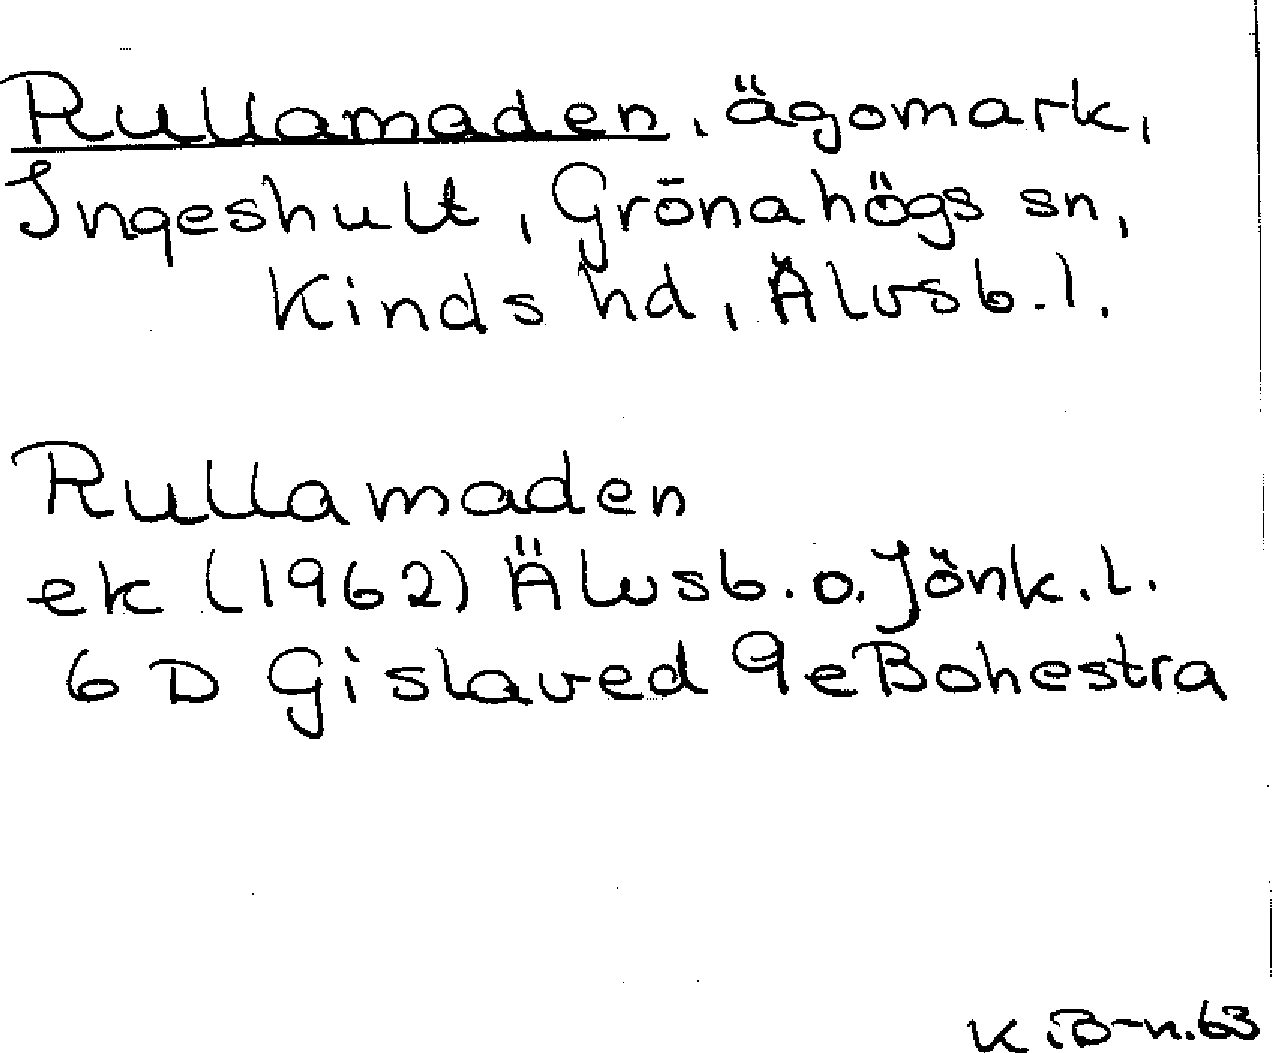 Rullamaden, ägomark,
Ingeshult, Grönahögs sn,
Kinds hd, Älvsb.l.
Rullamaden
ek (1962) Älvsb. o. Jönk.l.
6 D Gislaved 9e Bohestra
K.B-n.63